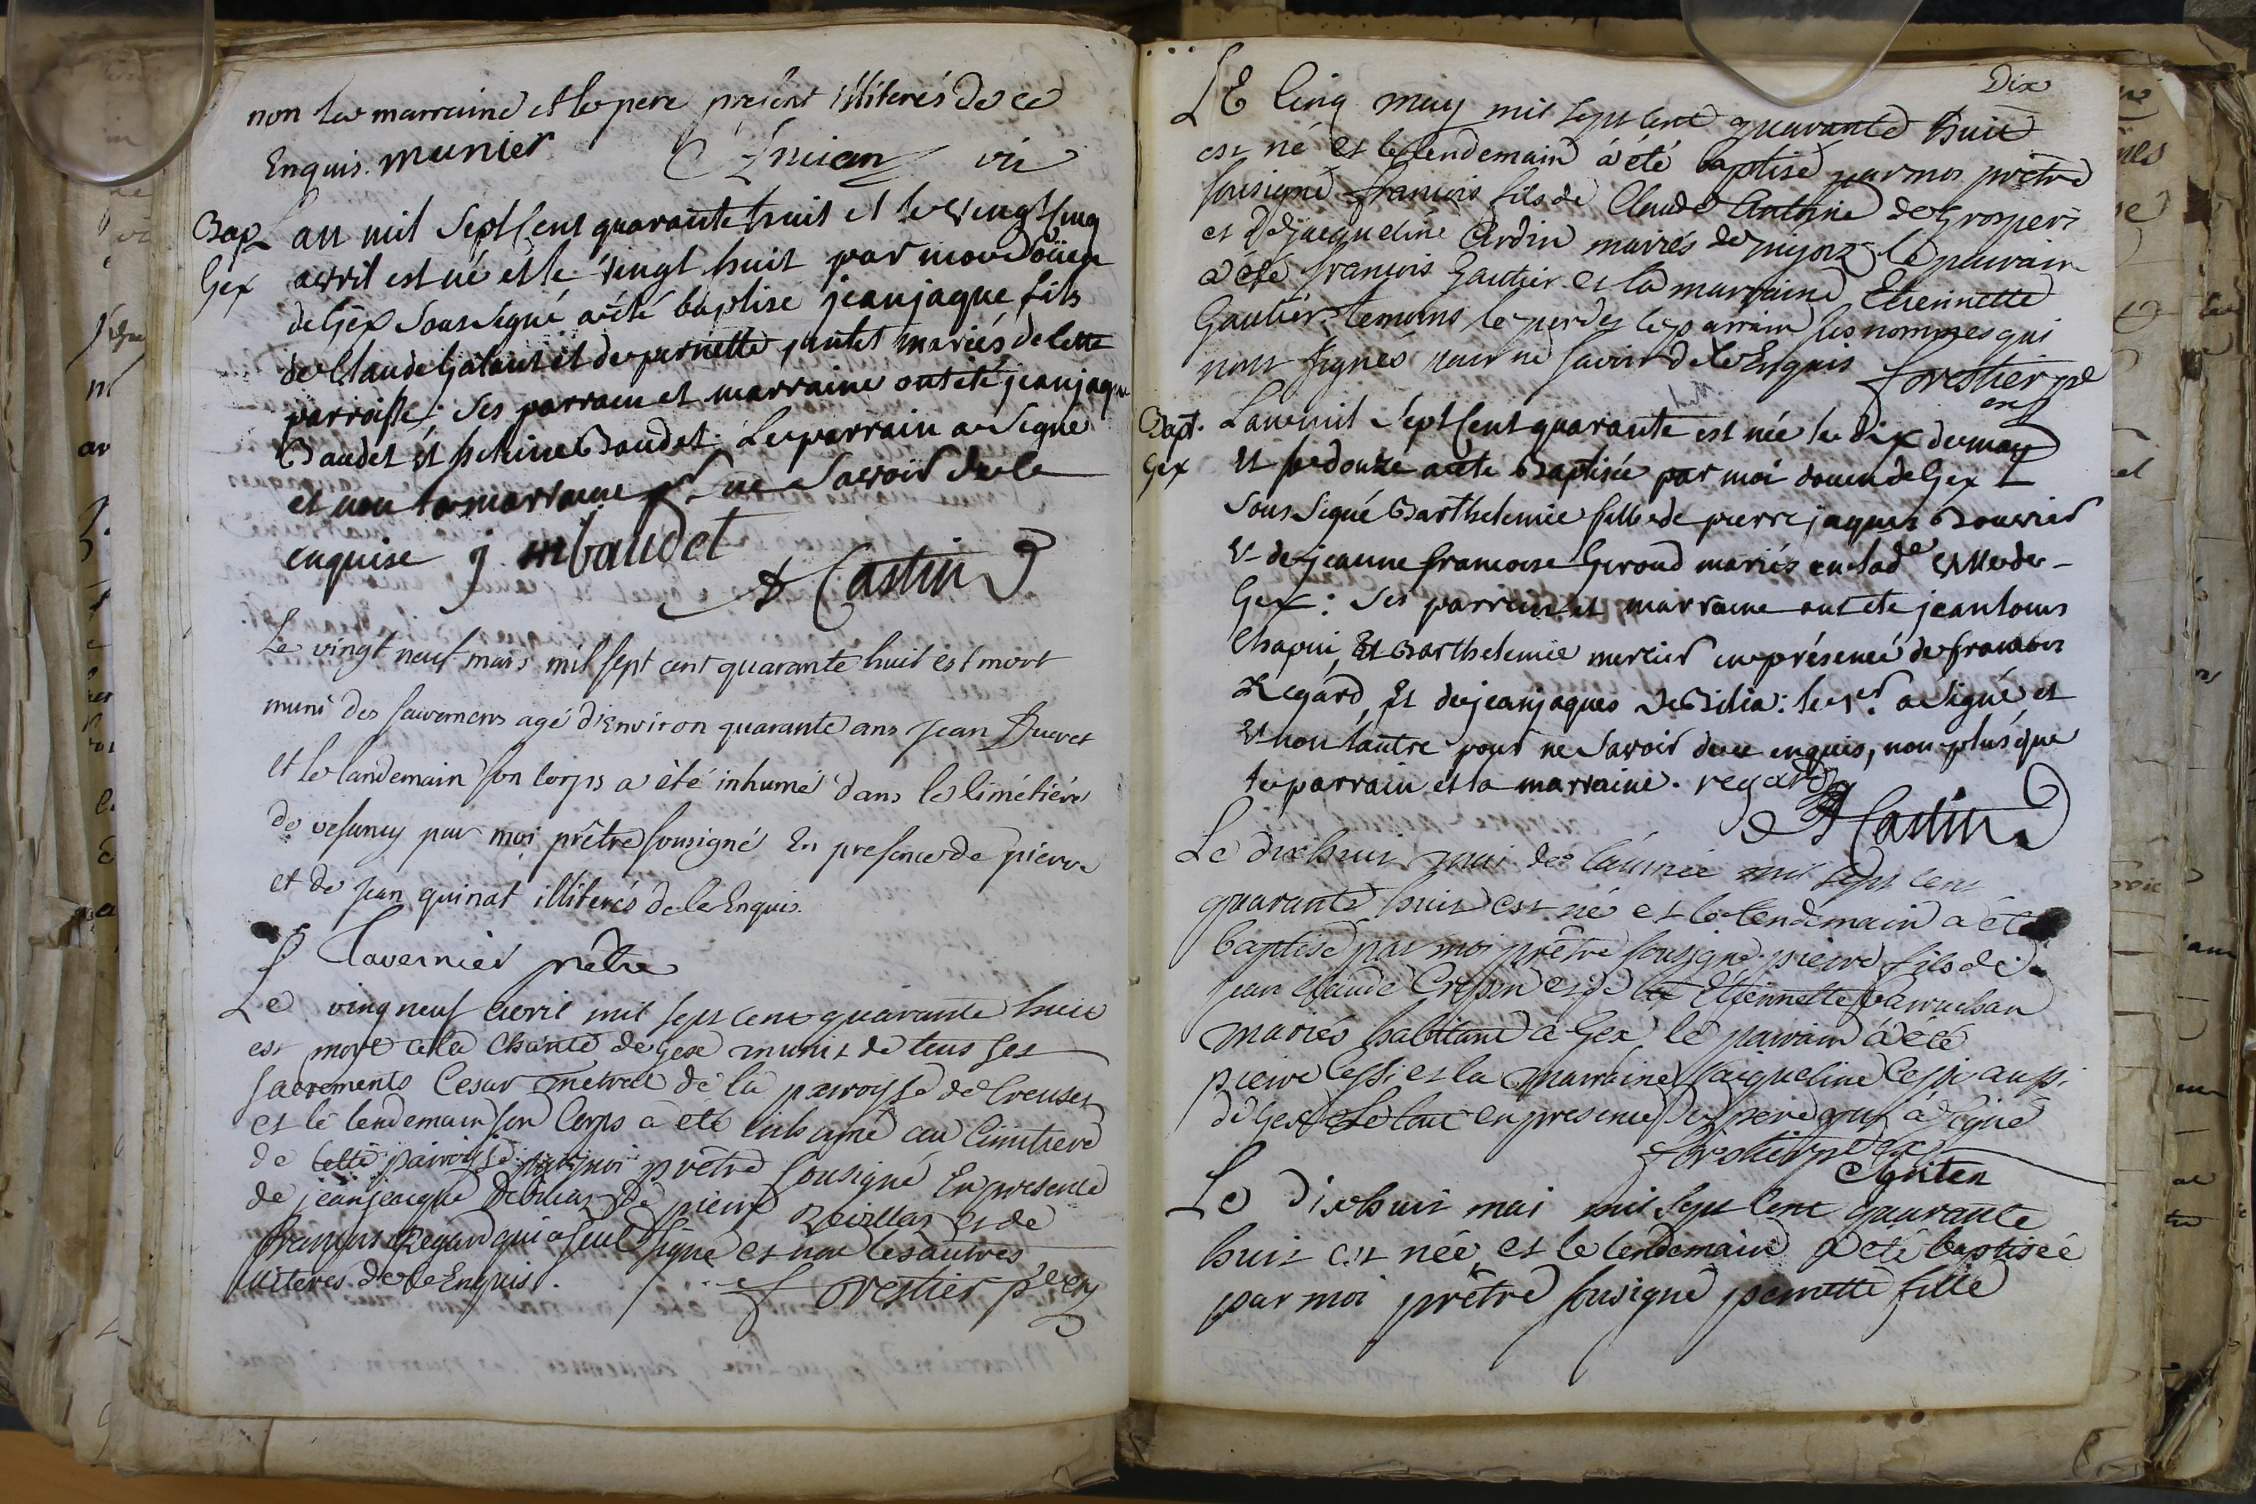 non la marraine et le pere present illiterés de ce
Enquis. munier Emian vic
Bap L'an mil sept cent quarante huit et le vingt cinq
Gex avril est né et le vingt huit par moi doüen
de Gex sous signé a été baptise jean jaque fils
de Claude Galant et de pernette mariés de cette
parroisse; ses parrain et marraine ont été jean jaque
Baudet et Baudet. Le parrain a signé
et non la marraine pr. ne savoir de ce
enquise j. baudet
Castin
Le vingt neuf mars mil sept cent quarante huit est mort
muni des sacremens agé d'Environ quarante ans Jean Duvret
et le landemain son corps a été inhumé dans le cimétiére
de vesancy par moi prêtre sousigné En presence de pierre
et de Jean quinat illiterés de ce Enquis.
Tavernier prêtre
Le ving neuf avril mil sept cent quarante huit
est mort a la Charité de gex munis de tous ses
sacrements Cesar metral de la parroisse de
et le lendemain son Corps a été inhumé au Cimitiere
de cette parroisse par moi prêtre sousigné En presence
de jean jacque de pierre et de
françois Regard qui a seul signé et non les autres
illiteres de ce Enquis.
forestier p
Dix
LE Cinq may mil sept cent quarante huit
est né et le lendemain a été baptisé par moi prêtre
sousigné françois fils de Claude Antoine de Grosperi
et De Jacqueline Ardin mariés de le parrain
a été francois Gautier et la marraine Etiennette
Gautier temoins le pere et le parrain sus nommes qui
nont signés pour ne savoir de ce Enquis forestier pre
Bapt. L'an mil sept cent quarante est née le dix de may
Gex Et le douze a été Baptisée par moi douen de Gex
sous signé Barthelemie fille de pierre jaques Bouvier
Et de jeanne francoise Giroud mariés en lade ville de
Gex: Ses parrein et marraine ont ete jean louis
Chapui Et Barthelemie mercier en présence de francois
Regard, Et de jean jaques DeBilia: le 1er. a signé et
Et non l'autre pour ne savoir de ce enquis, non plus que
le parrain et la marraine. regard
Castin
Le dixhuit mai de l'année mil sept cent
quarante huit est né et le lendemain a été
baptisé par moi prêtre sousigné pierre fils de
jean Claude Crespin et de Etiennette
mariés habitant à Gex, le parrain a été
pierre et la marraine Jacqueline aussi
de Gex le tout en presence du pere qui a signé
forestier
Le Dixhuit mai mil sept cent quarante
huit est née et le lendemain a été baptisée
par moi prêtre sousigné pernette fille